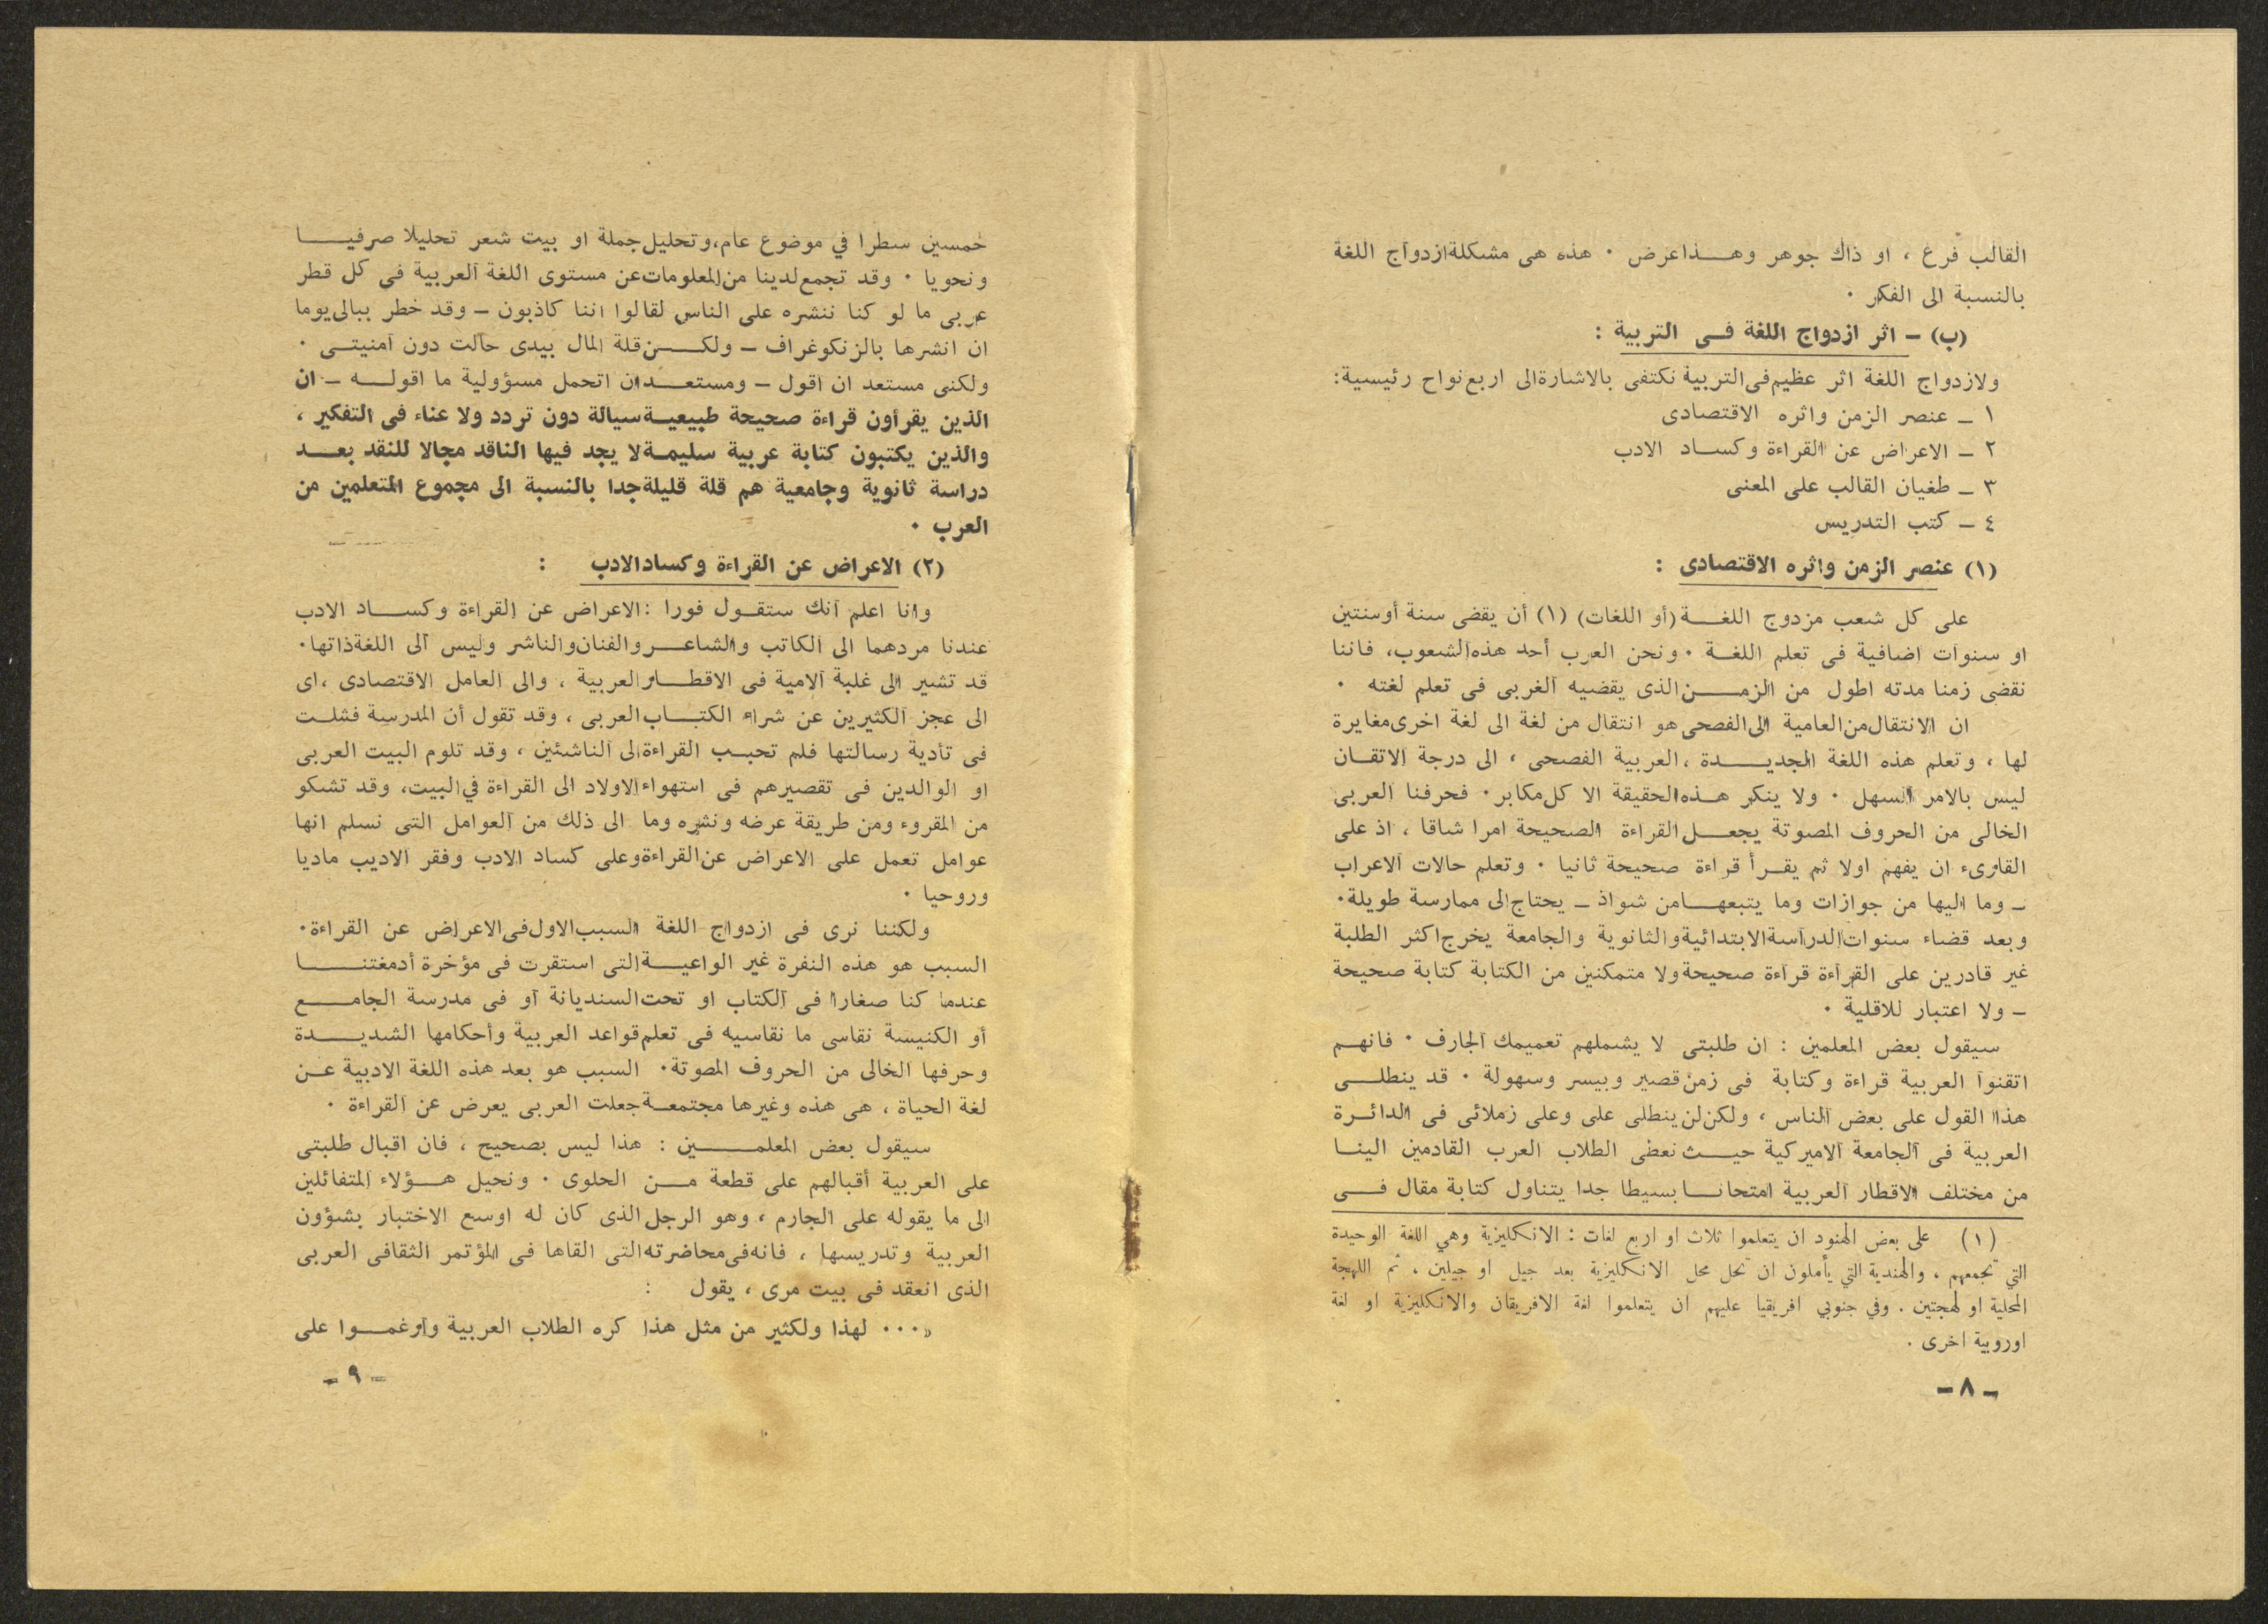 القالب فرغ ، او ذاك جوهر وهـــذا عرض ٠ هذه هى مشكلة ازدواج اللغة
بالنسبة الى الفكر ٠
(ب) – اثر ازدواج اللغة فــى التربية :
ولازدواج اللغة اثر عظيم فى التربية نكتفى بالاشارة الى اربع نواح رئيسية :
١ – عنصر الزمن واثره الاقتصادى
٢ – الاعراض عن القراءة وكســاد الادب
٣ – طغيان القالب على المعنى
٤ – كتب التدريس
(١) عنصر الزمن واثره الاقتصادى :
على كل شعب مزدوج اللغـــة (أو اللغات) (١) أن يقضى سنة أوسنتين
او سنوات اضافية فى تعلم اللغــة ٠ ونحن العرب أحد هذه الشعوب، فاننا
نقضى زمنا مدته اطول من الزمـــن الذى يقضيه الغربى فى تعلم لغته ٠
ان الانتقال من العامية الى الفصحى هو انتقال من لغة الى لغة اخرى مغايرة
لها ، وتعلم هذه اللغة الجديـــدة ، العربية الفصحى ، الى درجة الاتقــان
ليس بالامر السهل ٠ ولا ينكر هــذه الحقيقة الا كل مكابر ٠ فحرفنا العربى
الخالى من الحروف المصوتة يجعــل القراءة الصحيحة امرا شاقا ، اذ على
القارىء ان يفهم اولا ثم يقــرأ قراءة صحيحة ثانيا ٠ وتعلم حالات الاعراب
– وما اليها من جوازات وما يتبعهــا من شواذ – يحتاج الى ممارسة طويلة ٠
وبعد قضاء سنوات الدراسة الابتدائية والثانوية والجامعة يخرج اكثر الطلبة
غير قادرين على القراءة قراءة صحيحة ولا متمكنين من الكتابة كتابة صحيحة
– ولا اعتبار للاقلية ٠
سيقول بعض المعلمين : ان طلبتى لا يشملهم تعميمك الجارف ٠ فانهــم
اتقنوا العربية قراءة وكتابة فى زمن قصير وبيسر وسهولة ٠ قد ينطلــى
هذا القول على بعض الناس ، ولكن لن ينطلى على وعلى زملائى فى الدائــرة
العربية فى الجامعة الاميركية حيــث نعطى الطلاب العرب القادمين الينــا
من مختلف الاقطار العربية امتحانــا بسيطا جدا يتناول كتابة مقال فــى
(١) على بعض الهنود ان يتعلموا ثلاث او اربع لغات : الانكليزية وهي اللغة الوحيدة
التي تجمعهم ، والهندية التي يأملون ان تحل محل الانكليزية بعد جيل او جيلين ، ثم اللهجة
المحلية او لهجتين . وفي جنوبي افريقيا عليهم ان يتعلموا لغة الافريقان والانكليزية او لغة
اوروبية اخرى .
– ٨ –
خمسين سطرا في موضوع عام، وتحليل جملة او بيت شعر تحليلا صرفيـــا
ونحويا ٠ وقد تجمع لدينا من المعلومات عن مستوى اللغة العربية فى كل قطر
عربى ما لو كنا ننشره على الناس لقالوا اننا كاذبون – وقد خطر ببالى يوما
ان انشرها بالزنكوغراف – ولكـــن قلة المال بيدى حالت دون امنيتــى ٠
ولكنى مستعد ان اقول – ومستعــد ان اتحمل مسؤولية ما اقولــه – ان
الذين يقرأون قراءة صحيحة طبيعيــة سيالة دون تردد ولا عناء فى التفكير ،
والذين يكتبون كتابة عربية سليمــة لا يجد فيها الناقد مجالا للنقد بعــد
دراسة ثانوية وجامعية هم قلة قليلة جدا بالنسبة الى مجموع المتعلمين من
العرب ٠
(٢) الاعراض عن القراءة وكساد الادب :
وانا اعلم انك ستقــول فورا : الاعراض عن القراءة وكســاد الادب
عندنا مردهما الى الكاتب والشاعــر والفنان والناشر وليس الى اللغة ذاتها ٠
قد تشير الى غلبة الامية فى الاقطــار العربية ، والى العامل الاقتصادى ، اى
الى عجز الكثيرين عن شراء الكتــاب العربى ، وقد تقول أن المدرسة فشلــت
فى تأدية رسالتها فلم تحبــب القراءة الى الناشئين ، وقد تلوم البيت العربى
او الوالدين فى تقصيرهم فى استهواء الاولاد الى القراءة في البيت، وقد تشكو
من المقروء ومن طريقة عرضه ونشره وما الى ذلك من العوامل التى نسلم انها
عوامل تعمل على الاعراض عن القراءة وعلى كساد الادب وفقر الاديب ماديا
وروحيا ٠
ولكننا نرى فى ازدواج اللغة السبب الاول فى الاعراض عن القراءة ٠
السبب هو هذه النفرة غير الواعيــة التى استقرت فى مؤخرة أدمغتنـــا
عندما كنا صغارا فى الكتاب او تحت السنديانة او فى مدرسة الجامــع
أو الكنيسة نقاسى ما نقاسيه فى تعلم قواعد العربية وأحكامها الشديـــدة
وحرفها الخالى من الحروف المصوتة ٠ السبب هو بعد هذه اللغة الادبية عــن
لغة الحياة ، هى هذه وغيرها مجتمعــة جعلت العربى يعرض عن القراءة ٠
سيقول بعض المعلمـــين : هذا ليس بصحيح ، فان اقبال طلبتى
على العربية أقبالهم على قطعة مــن الحلوى ٠ ونحيل هــؤلاء المتفائلين
الى ما يقوله على الجارم ، وهو الرجل الذى كان له اوسع الاختبار بشؤون
العربية وتدريسها ، فانه فى محاضرته التى القاها فى المؤتمر الثقافى العربى
الذى انعقد فى بيت مرى ، يقول :
«٠٠٠ لهذا ولكثير من مثل هذا كره الطلاب العربية وأرغمــوا على
– ٩ –